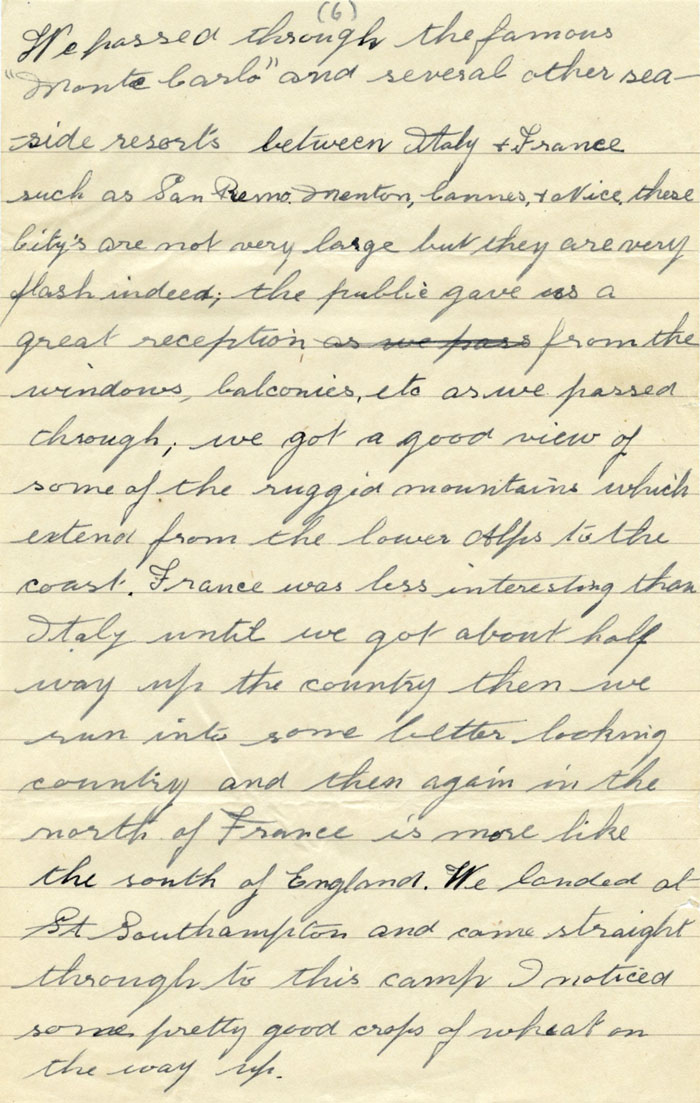 (6)
We passed through the famous
"Monte Carlo" and several other sea-
-side resorts between Italy + France
such as San Remo. Menton, Cannes, + Nice, these
City's are not very large but they are very
flash indeed; the public gave us a
great reception as we pass from the
windows, balconies, etc as we passed
through; we got a good view of
some of the ruggid mountains which
extend from the lower Alps to the
coast. France was less interesting than
Italy until we got about half
way up the country then we
run into some better looking
country and then again in the
north of France is more like
the south of England. We landed at
St Southampton and came straight
through to this camp I noticed
some pretty good crops of wheat on
the way up.